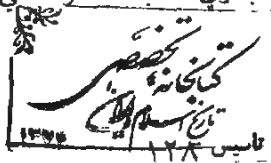 کتابخانه تخصصی
تاریخ اسلام و ایران
۱۳۷۴
تاسیس ۱۲۸